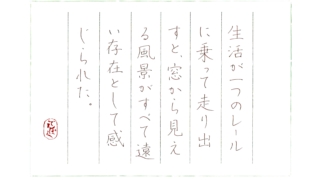 生活が一つのレール
に乗って走り出
すと、窓から見え
る風景がすべて遠
い存在として感
じられた。